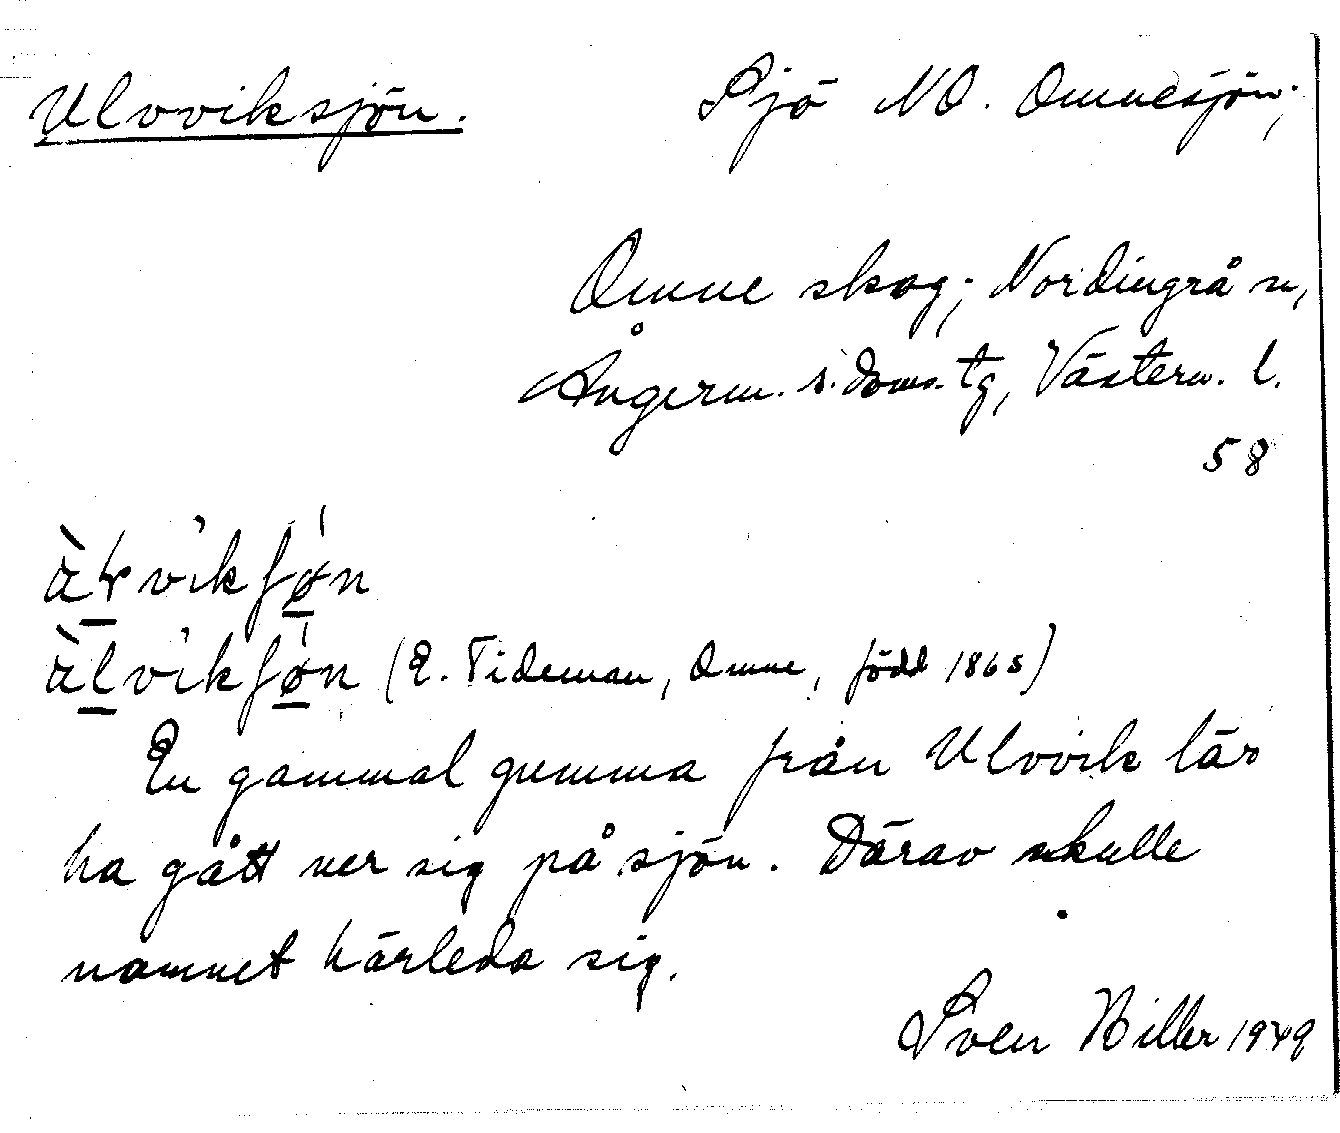 Ulvviksjön. Sjö NO. Omnesjön;
Omne skog; Nordingrå sn,
Ångerm. s. doms. tg, Västern. l.
58
àɽvikʃøn
àlvikʃøn (E. Tideman, Omne, född 1865)
En gammal gumma från Ulvvik lär
ha gått ner sig på sjön. Därav skulle
namnet härleda sig.
Sven Hiller 1949